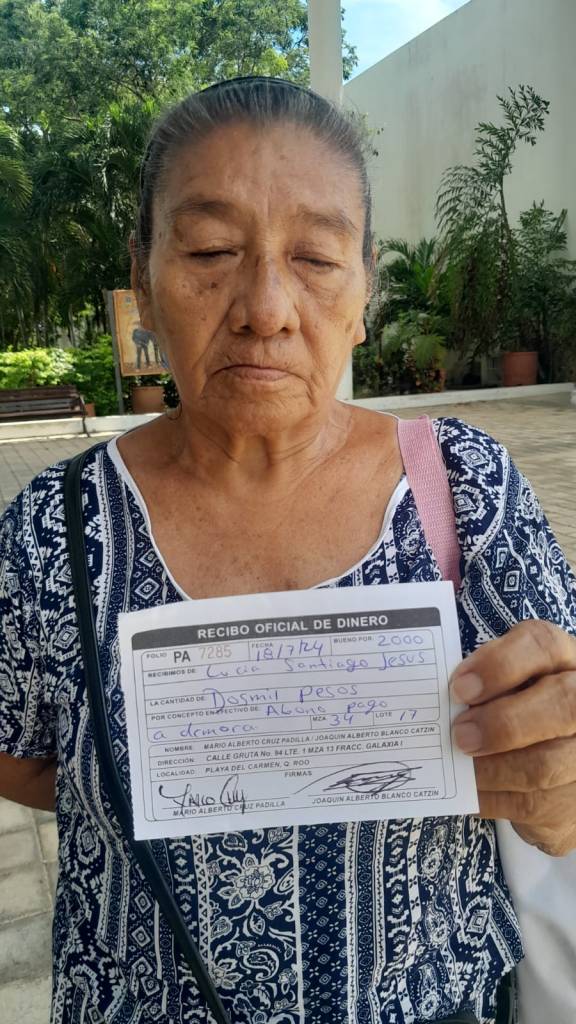 RECIBO OFICIAL DE DINERO
FOLIO PA 7285 FECHA 18/7/24 BUENO POR: 2000
RECIBIMOS DE: Lucia Santiago Jesus
LA CANTIDAD DE: Dosmil pesos
POR CONCEPTO EN EFECTIVO DE: Abono pago
a demora MZA 34 LOTE 17
NOMBRE: MARIO ALBERTO CRUZ PADILLA / JOAQUIN ALBERTO BLANCO CATZIN
DIRECCIÓN: CALLE GRUTA No. 94 LTE. 1 MZA 13 FRACC. GALAXIA I
LOCALIDAD: PLAYA DEL CARMEN, Q. ROO
FIRMAS
MARIO ALBERTO CRUZ PADILLA JOAQUIN ALBERTO BLANCO CATZIN